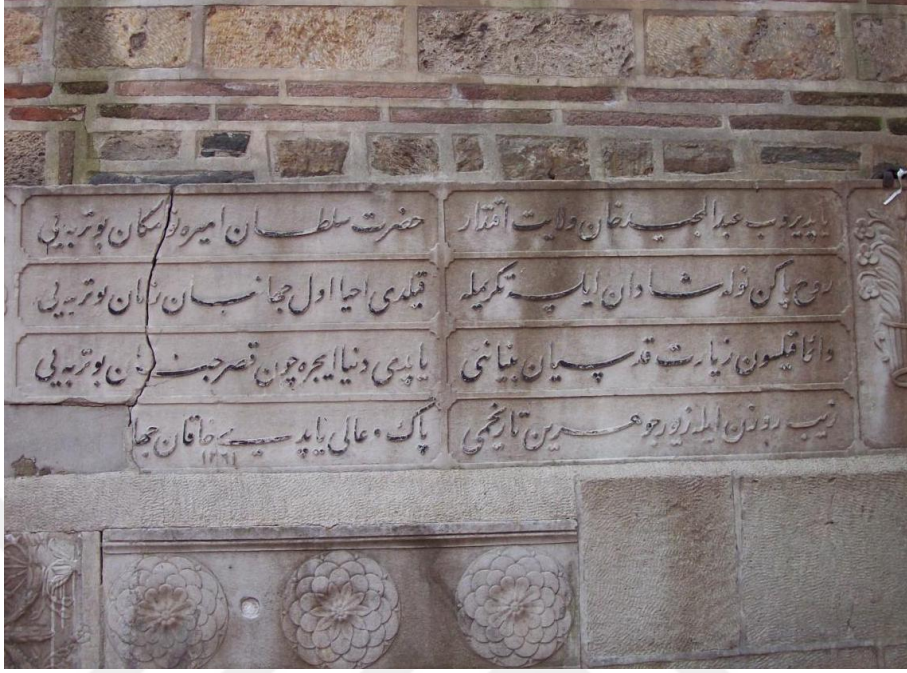 یاپدیروب عبدالمجید خان ولایت اقتدار
حضرت سلطان امیره مکان بو تربه یی
روح پاکن نوله شادان ایلسه تکریمله
قیلدی احیا اول جهانبان زمان بو تربه یی
دائما قیلسون زیارت قدسیان بنیاننی
یاپدی دنیا ایچره چون قصر جنان بو تربه یی
زیب روزن ایلر زیور جوهرین تاریخمی
پاک و عالی یاپدی خاقان جها
١٢٦١